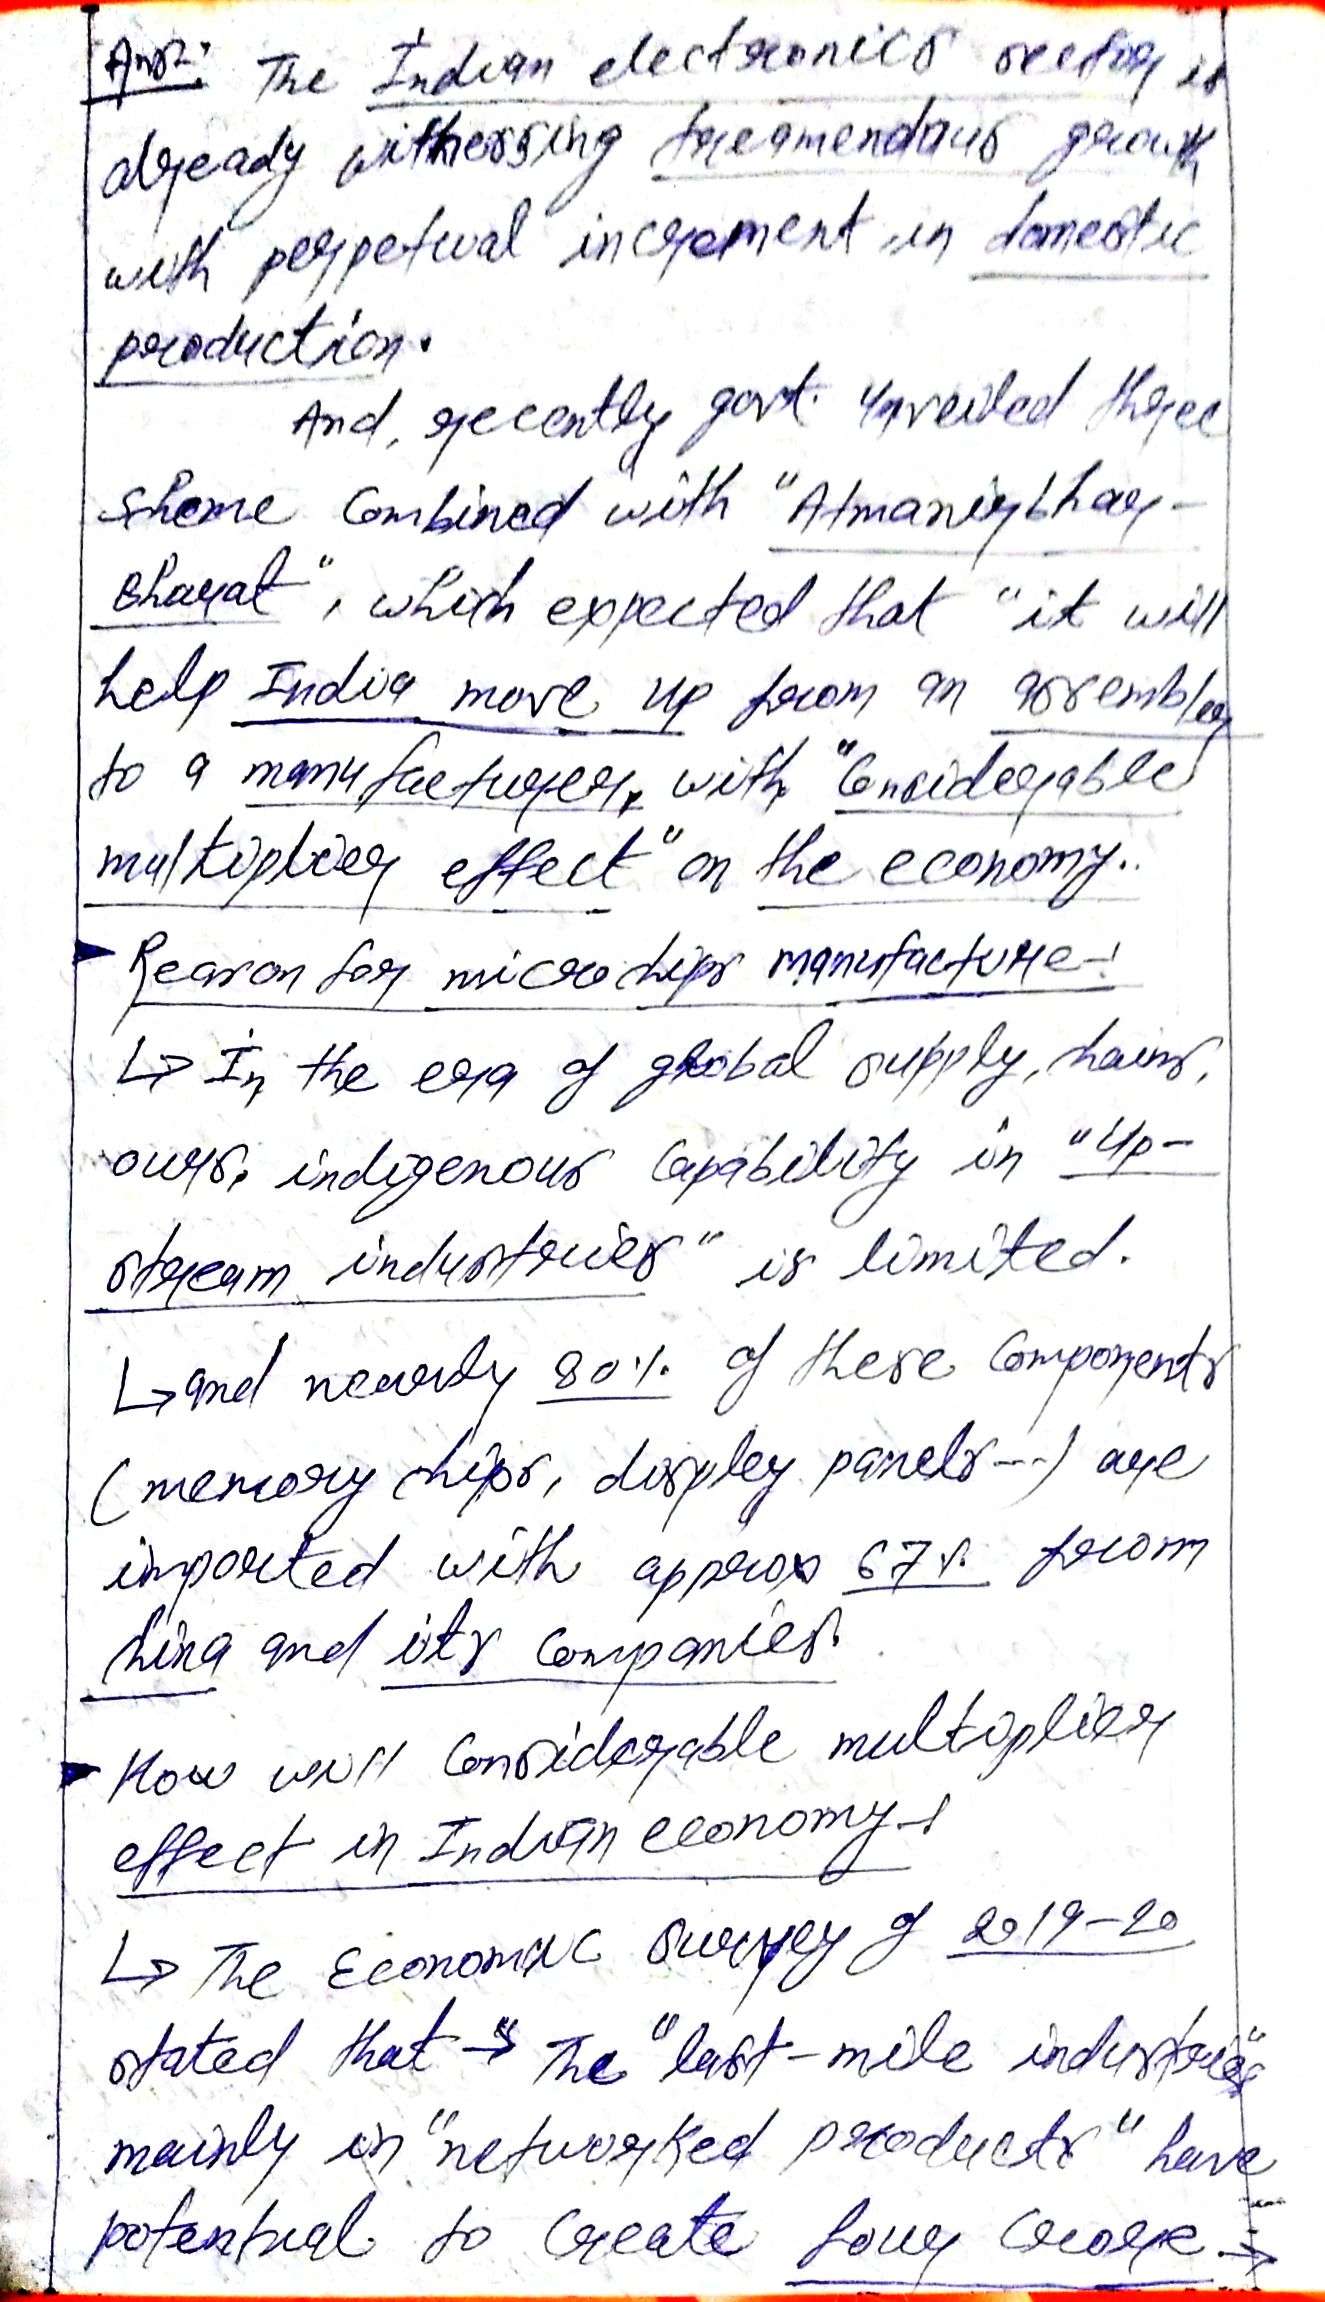 Ans:- The Indian electronics sector is
already witnessing treamendous growth
with perpetual increment in domestic
production.
And, recently govt. unveiled three
scheme combined with "Atmanirbhar-
Bharat", which expected that "it will
help India move up from an assembler
to a manufacturer, with "Considerable
multiplier effect" on the economy..
Reason for micro chips manufacture-:
↳ In the era of global supply, chains,
ours, indigenous capability in "Up-
stream industries" is limited.
↳ and nearly 80% of these components
(memory chips, display panels---) are
imported with approx 67% from
China and its companies.
How will considerable multiplier
effect in Indian economy-:
↳ The Economic Survey of 2019-20
stated that → "The "last-mile industries"
mainly in "networked products" have
potential to create four crore →